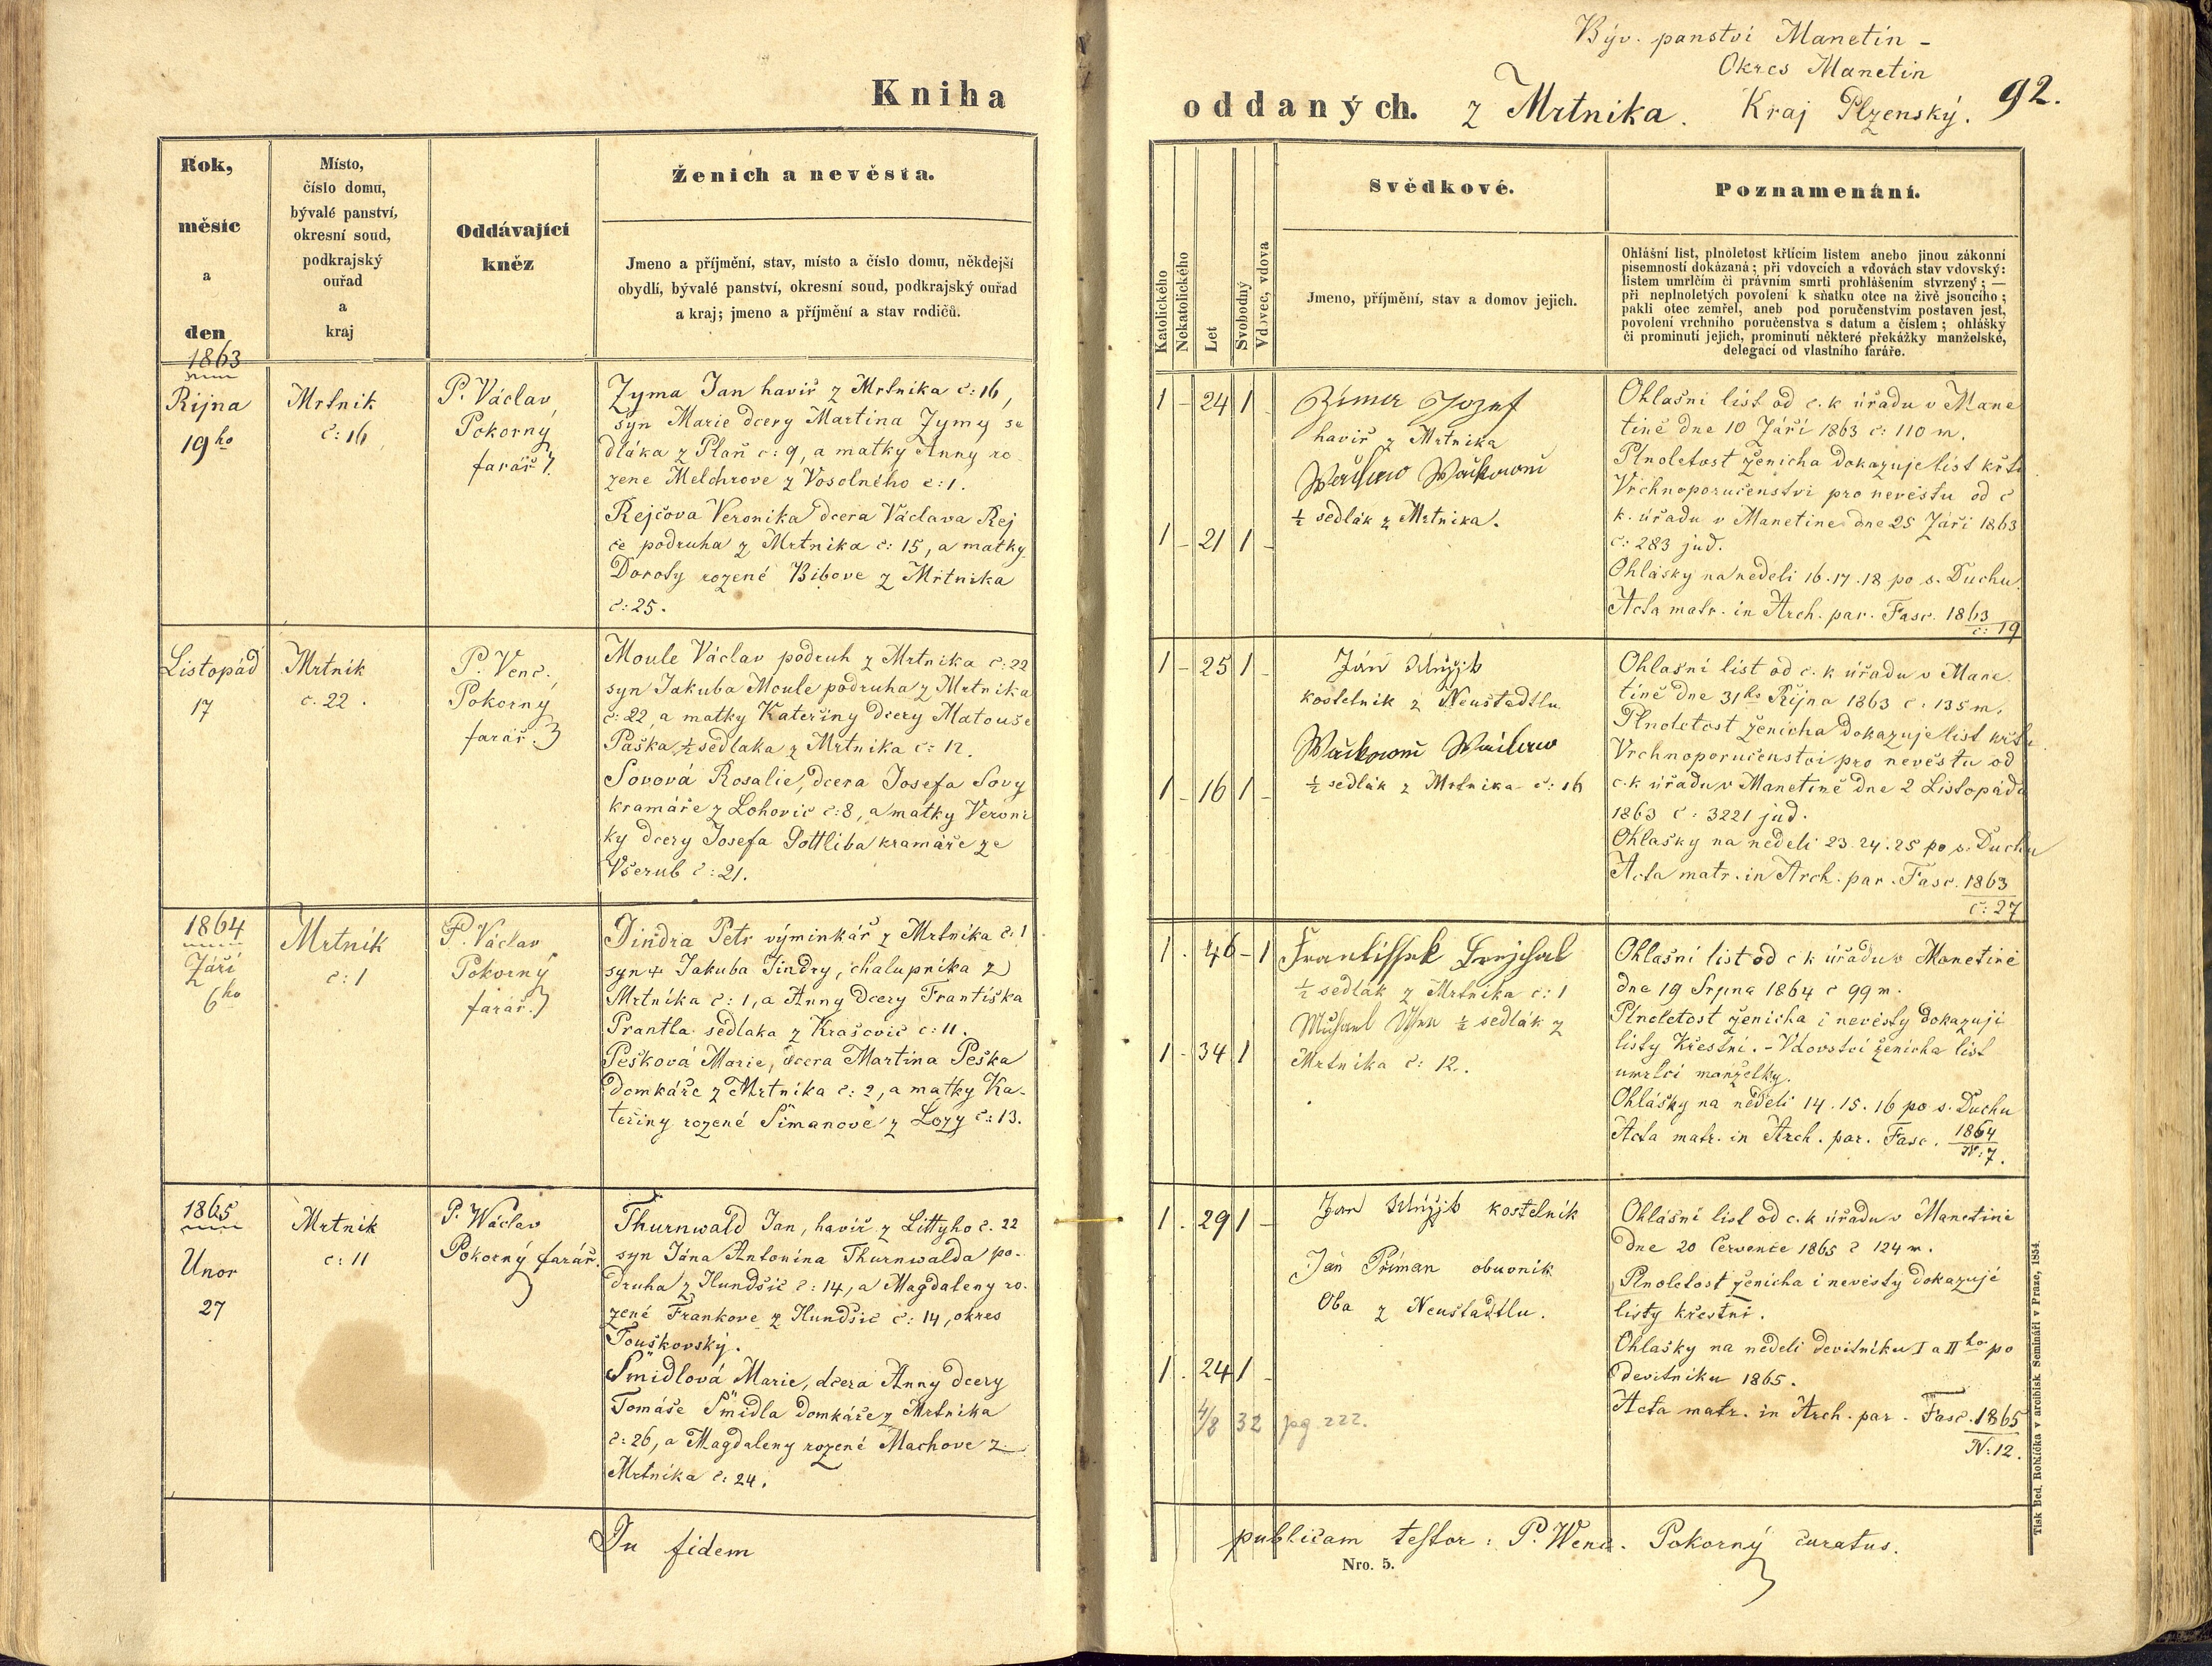 Kniha
Rok,
měsíc
a
den
Místo,
číslo domu,
bývalé panství,
okresní soud,
podkrajský
ouřad
a
kraj
Oddávající
kněz
Ženich a nevěsta.
Jmeno a příjmění, stav, místo a číslo domu, někdejší
obydlí, bývalé panství, okresní soud, podkrajský ouřad
a kraj; jmeno a příjmění a stav rodičů.
1863
Října
19ho
Mrtnik
č: 16
P. Václav
Pokorný
farář
Zyma Jan havíř z Mrtnika č: 16,
syn Marie dcery Martina Zymy se
dláka z Plaň č: 9, a matky Anny ro
zene Melchrove z Vosolného č: 1.
Rejčova Veronika dcera Václava Rej
če podruha z Mrtnika č: 15, a matky
Doroty rozené Bibove z Mrtnika
č: 25.
Listopád
17
Mrtnik
č. 22.
P. Venc.
Pokorny
farář.
Moule Václav podruh z Mrtnika č: 22
syn Jakuba Moule podruha z Mrtnika
č: 22, a matky Kateřiny dcery Matouše
Paška ½ sedlaka z Mrtnika č: 12.
Sovová Rosalie, dcera Josefa Sovy
kramáře z Lohovic č: 8, a matky Veroni
ky dcery Josefa Gottliba kramáře ze
Všerub č: 21.
1864
Září
6ho
Mrtnik
č: 1
P. Václav
Pokorný
farář.
Jindra Petr výminkář z Mrtnika č: 1
syn + Jakuba Jindry, chalupníka z
Mrtnika č: 1, a Anny dcery Františka
Prantla sedlaka z Krašovic č: 11.
Pešková Marie, dcera Martina Peška
domkáře z Mrtnika č: 2, a matky Ka-
teřiny rozené Šimanové z Lozy č: 13.
1865
Unor
27
Mrtnik
č: 11
P. Wáclav
Pokorný farář.
Thurnwald Jan, havíř z Littyho č. 22
syn Jána Antonína Thurnwalda po-
druha z Hundšic č: 14, a Magdaleny ro-
zené Frankove z Hundšic č: 14, okres
Touškovský.
Šmidlová Marie, dcera Anny dcery
Tomáše Šmidla domkáře z Mrtnika
č: 26, a Magdaleny rozené Machove z
Mrtnika č: 24.
In fidem
Býv. panství Manetín -
Okres Manetin
oddaných. z Mrtnika. Kraj Plzenský. 92.
Katolického
Nekatolického
Let
Svobodný
Vdovec, vdova
Svědkové.
Jmeno, příjmění, stav a domov jejich.
Poznamenání.
Ohlášní list, plnoletost křtícím listem anebo jinou zákonní
písemností dokázaná; při vdovcích a vdovách stav vdovský:
listem umrlčím či právním smrti prohlášením stvrzený; —
při neplnoletých povolení k sňatku otce na živě jsoucího;
pakli otec zemřel, aneb pod poručenstvím postaven jest,
povolení vrchního poručenstva s datum a číslem; ohlášky
či prominutí jejich, prominutí některé překážky manželské,
delegací od vlastního faráře.
1 - 24 1 -
Jozef
havíř z Mrtnika
½ sedlák z Mrtnika.
1 - 21 1 -
Ohlašni list od c. k úřadu v Mane
tině dne 10 Září 1863 č: 110 m.
Plnoletost ženicha dokazuje list křti
Vrchnoporučenstvi pro nevěstu od c
k. úřadu v Manetine dne 25 Září 1863
č: 283 jud.
Ohlásky na neděli 16. 17. 18 po s. Duchu.
Acta matr. in Arch. par. Fasc. 1863
č: 19
1 - 25 1 -
Ján
kostelnik z Neustadtlu
½ sedlák z Mrtnika č: 16
1 - 16 1 -
Ohlašní list od c. k úřadu v Mane
tině dne 31ho Října 1863 č: 135 m.
Plnoletost ženicha dokazuje list křtu
Vrchnoporučenství pro nevěstu od
c. k úřadu v Manetině dne 2 Listopádu
1863 č: 3221 jud.
Ohlašky na neděli 23. 24. 25 po s. Duchu
Acta matr. in Arch. par. Fasc. 1863
č: 27
1 . 46 - 1
Frantissek
½ sedlák z Mrtnika č: 1
½ sedlák z
Mrtnika č: 12.
1 - 34 1
Ohlašní list od c k úřadu v Manetině
dne 19 Srpna 1864 č 99 m.
Plnoletost ženicha i nevěsty dokazuji
listy Křestní. - Vdovství ženicha list
umrlčí manželky.
Ohlášky na neděli 14. 15. 16 po s. Duchu
Acta matr. in Arch. par. Fasc. 1864
N: 7.
1 . 29 1 -
Jan kostelník
Ján Přiman obuvník
Oba z Neustadtlu.
1 . 24 1 -
4/8 32 pg. 222.
Ohlásní list od c. k úřadu v Manetině
dne 20 Července 1865 č 124 m.
Plnoletost ženicha i nevěsty dokazujé
listy křestní.
Ohlašky na neděli devítníku I a IIho po
devítníku 1865.
Acta matr. in Arch. par. Fasc. 1865
N: 12.
publicam testor: P. Wenc. Pokorný curatus.
Nro. 5.
Tisk Bed. Rohlíčka v arcibisk. Semináři v Praze, 1854.